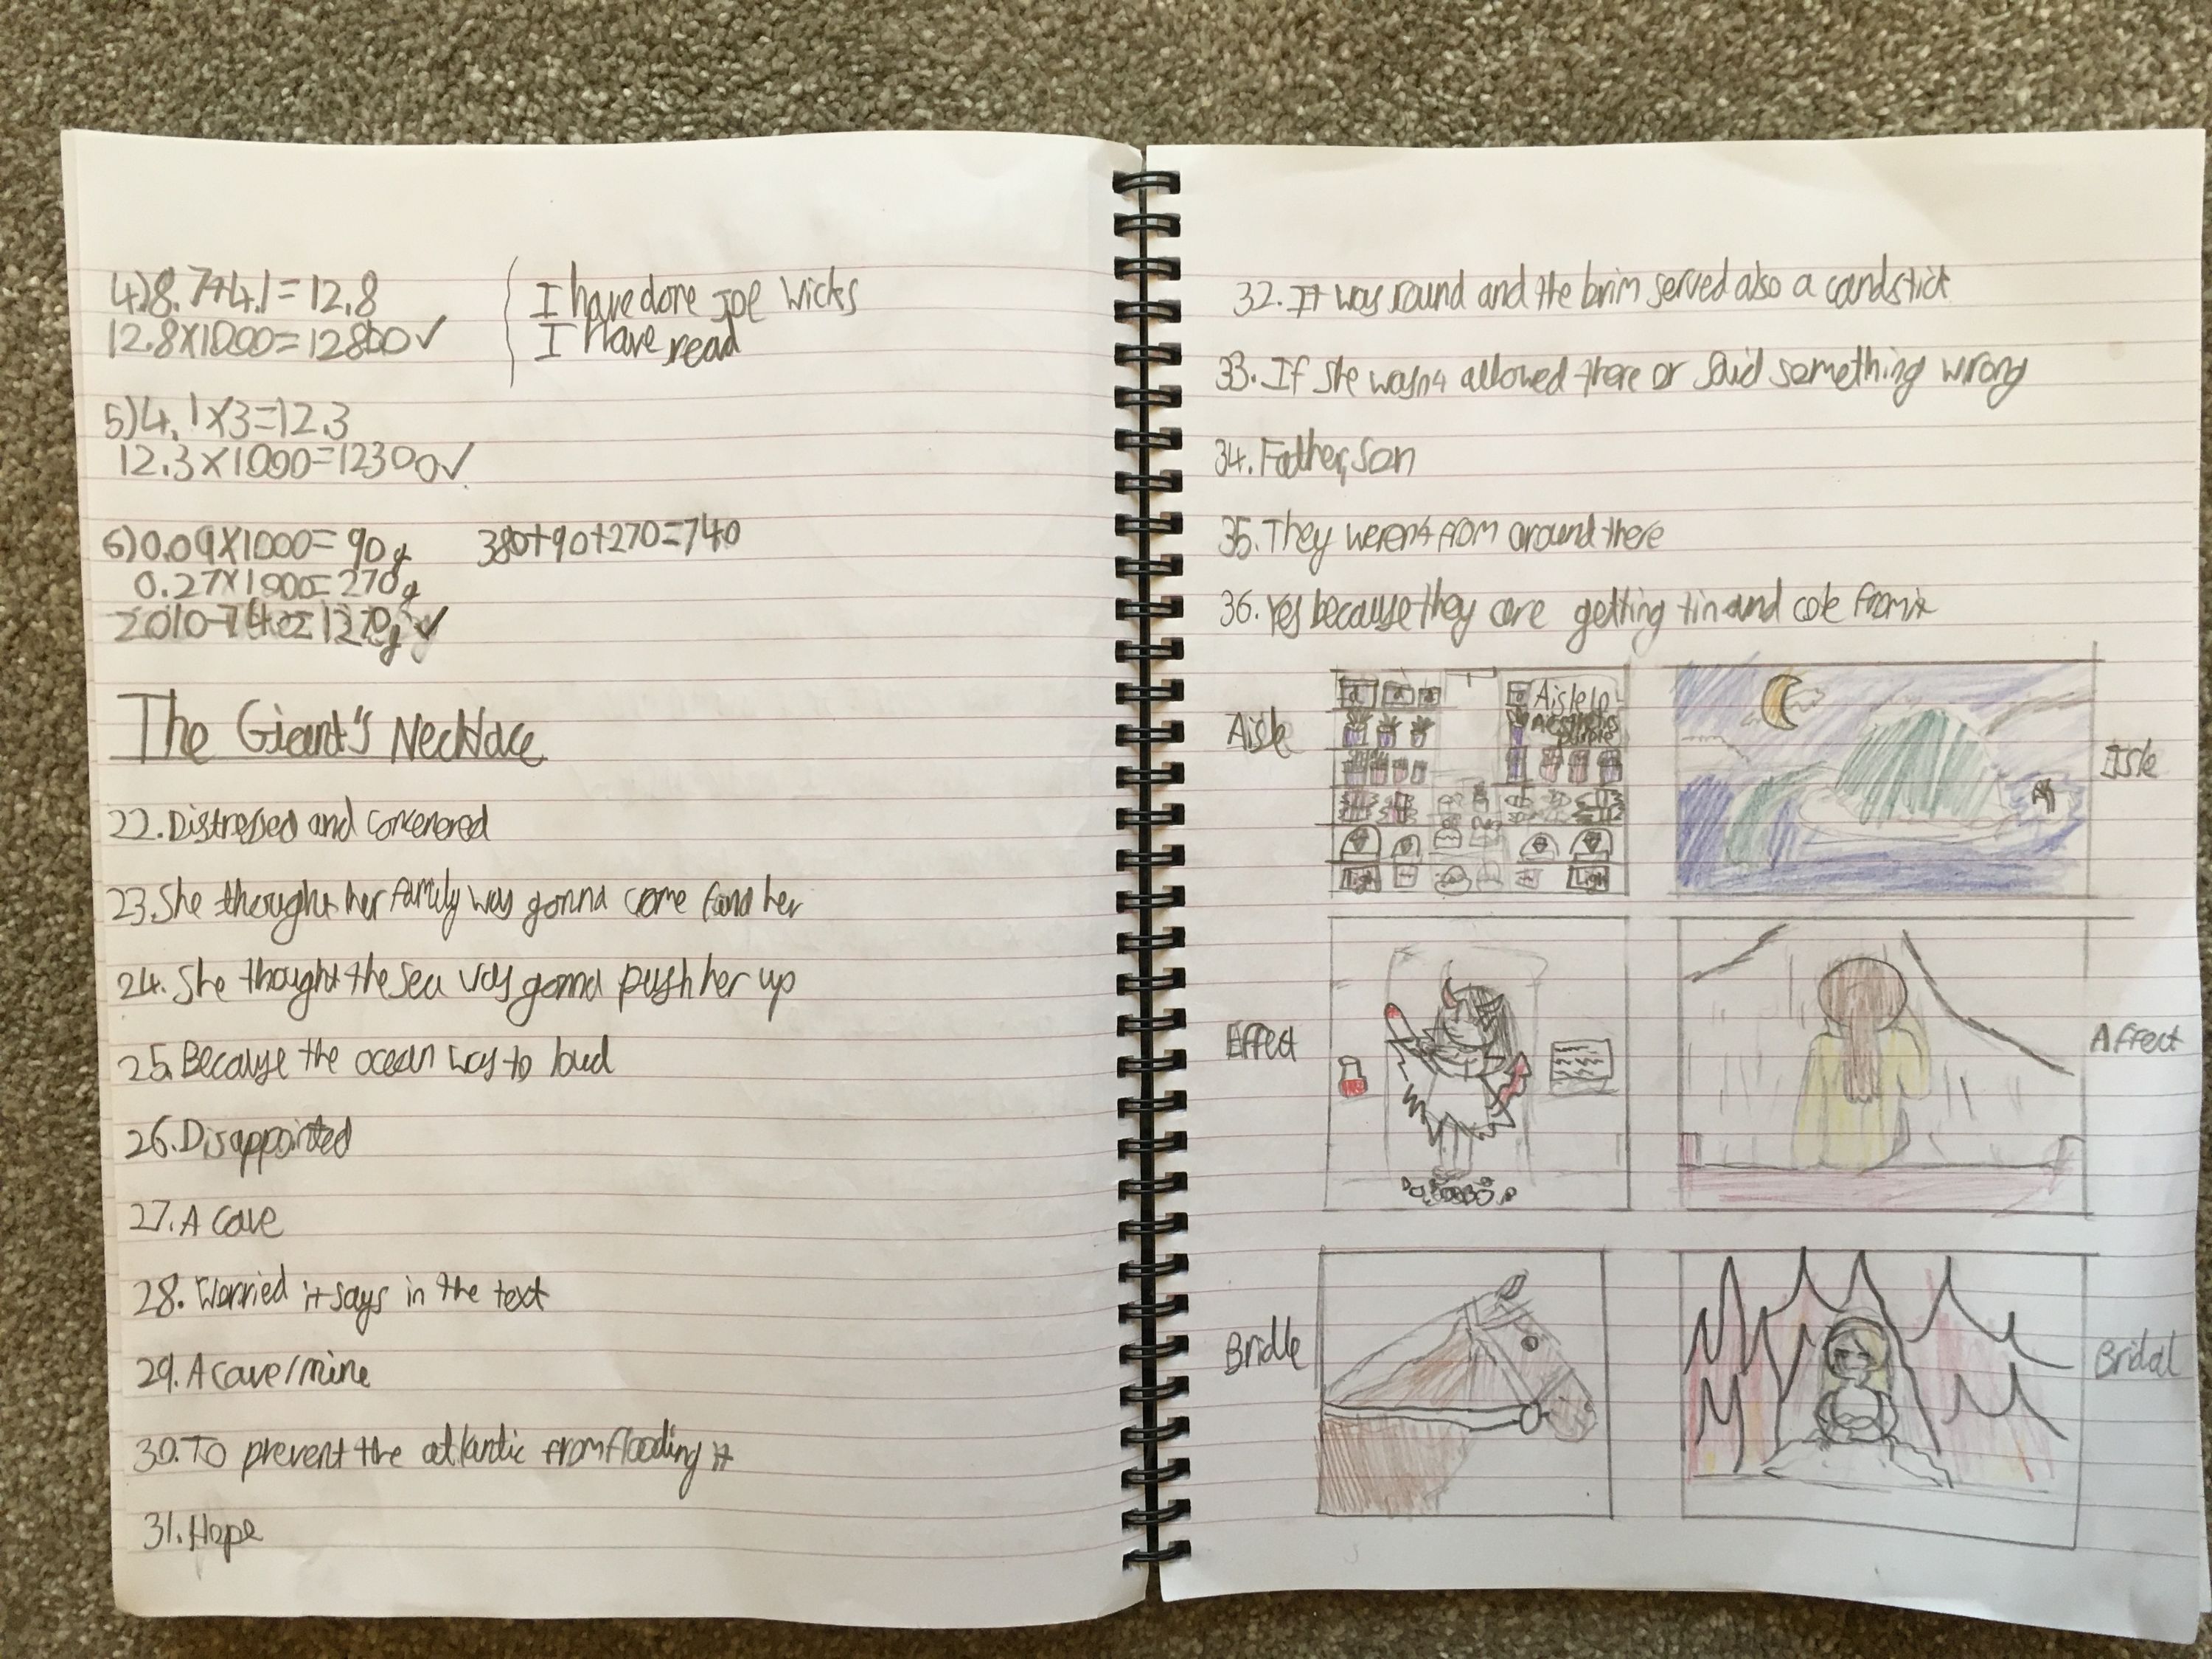 4) 8.7+4.1=12.8
12.8x1000=12800✓
I have done Joe Wicks
I Have read
5) 4.1x3=12.3
12.3x1000=12300✓
6) 0.09x1000=90g
380+90+270=740
0.27x1000=270g
2010-740=1270g✓
The Giant's Necklace
22. Distressed and concenered
23. She thought her family was gonna come fand her
24. She thought the sea was gonna push her up
25. Because the ocean was to loud
26. Disappointed
27. A cave
28. Worried it says in the text
29. A cave/mine
30. To prevent the atlantic from flooding it
31. Hope
32. It was round and the brim served also a candstick
33. If she wasnt allowed there or said something wrong
34. Father, son
35. They werent from around there
36. Yes because they are getting tin and cole from it
Aisle
Aisle
purple
Light
Light
Isle
Effect
Affect
Bridle
Bridal